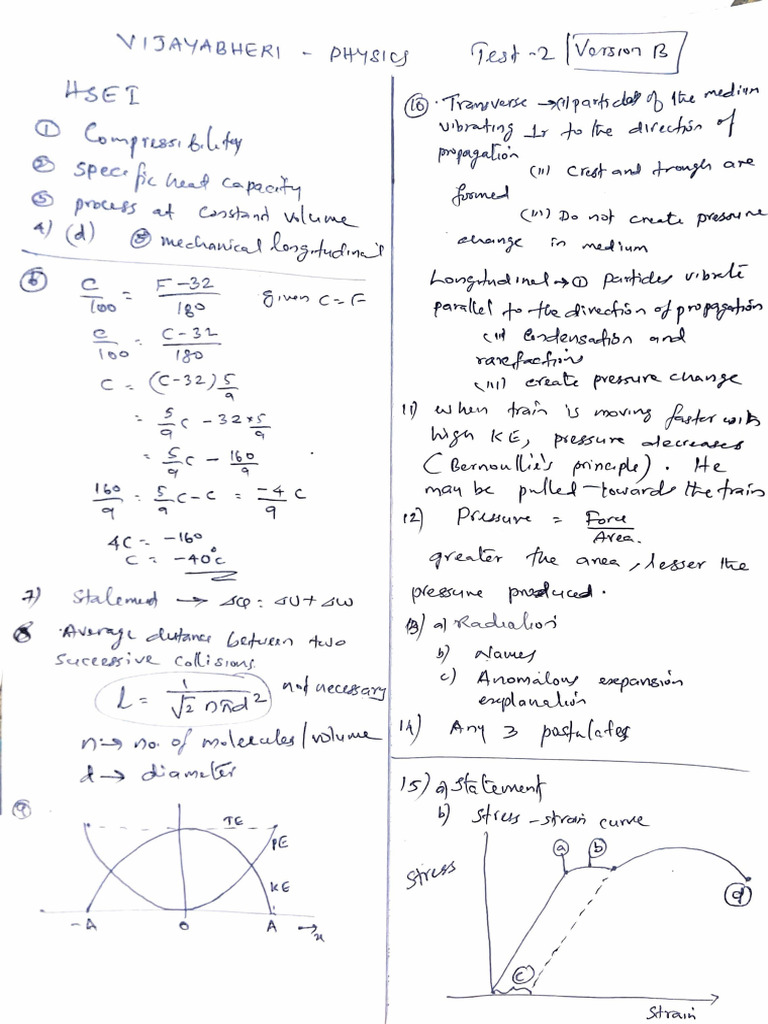 VIJAYABHERI - PHYSICS Test-2 Version B
HSE I
① Compressibility
② specific heat capacity
③ process at constant volume
4) (d) ⑤ mechanical longitudinal
⑥ C/100 = F-32/180 given C=F
C/100 = C-32/180
C = (C-32) 5/9
= 5/9 C - 32×5/9
= 5/9 C - 160/9
160/9 = 5/9 C - C = -4/9 C
4C = -160
C = -40°C
7) Statement → ΔQ = ΔU + ΔW
8 Average distance between two
successive collisions.
L = 1/√2 nπd² not necessary
n → no. of molecules/volume
d → diameter
⑨
TE
PE
KE
-A 0 A → x
⑩ Transverse → (i) particles of the medium
vibrating ⊥r to the direction of
propagation
(ii) Crest and trough are
formed
(iii) Do not create pressure
change in medium
Longitudinal → ① particles vibrate
parallel to the direction of propagation
(ii) Condensation and
rarefaction
(iii) create pressure change
11) when train is moving faster with
high KE, pressure decreases
(Bernoullie's principle). He
may be pulled towards the train
12) Pressure = Force/Area.
greater the area, lesser the
pressure produced.
13) a) Radiation
b) Names
c) Anomalous expansion
explanation
14) Any 3 postulates
15) a) statement
b) Stress-strain curve
Stress
ⓐ ⓑ
ⓓ
ⓒ
Strain